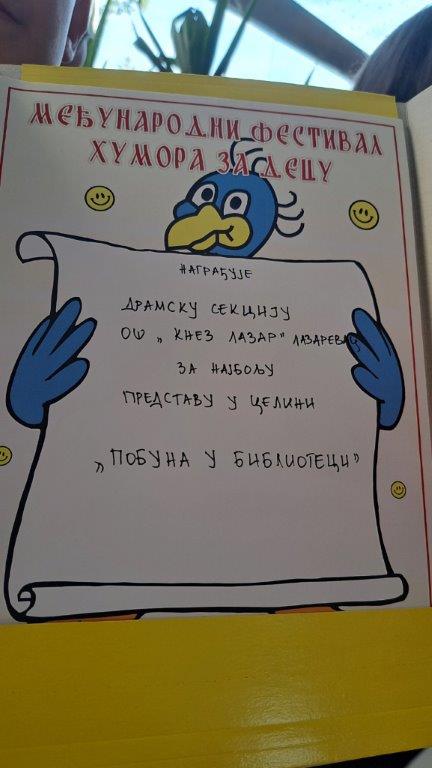 МЕЂУНАРОДНИ ФЕСТИВАЛ
ХУМОРА ЗА ДЕЦУ
НАГРАЂУЈЕ
ДРАМСКУ СЕКЦИЈУ
ОШ „КНЕЗ ЛАЗАР" ЛАЗАРЕВАЦ
ЗА НАЈБОЉУ
ПРЕДСТАВУ У ЦЕЛИНИ
„ПОБУНА У БИБЛИОТЕЦИ"